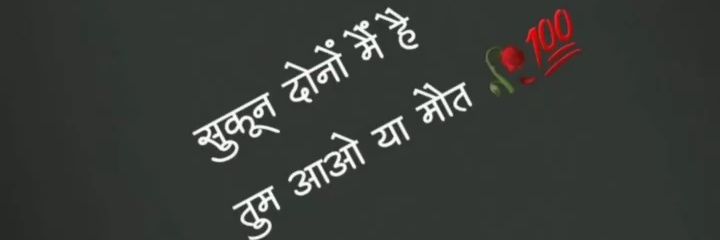 सुकून दोनों मैं है
तुम आओ या मौत 🥀💯